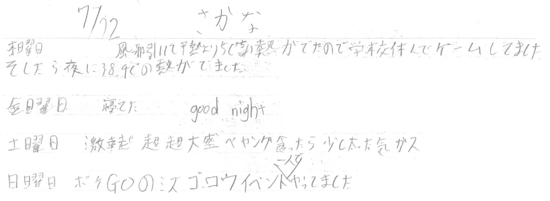 7/12 さかな
木曜日 風邪引いて平熱より5℃高い熱がでたので学校休んでゲームしてました
そしたら夜に38.9℃の熱がでました
金曜日 寝てた good night
土曜日 激辛 超超大盛ペヤング食ったら少し太った気がス
日曜日 ポケGOのミズゴロウイベントやってました